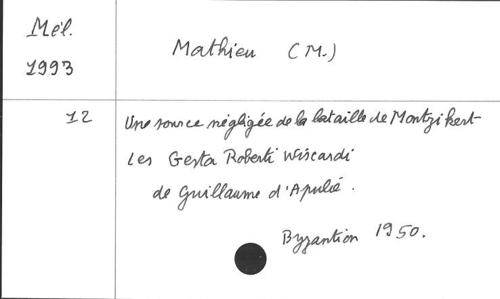 Mél.
1993
Mathieu (M.)
12
Une source négligée de la bataille de Montzikert
Les Gesta Roberti Wiscardi
de Guillaume d'Apulié.
Byzantion 1950.